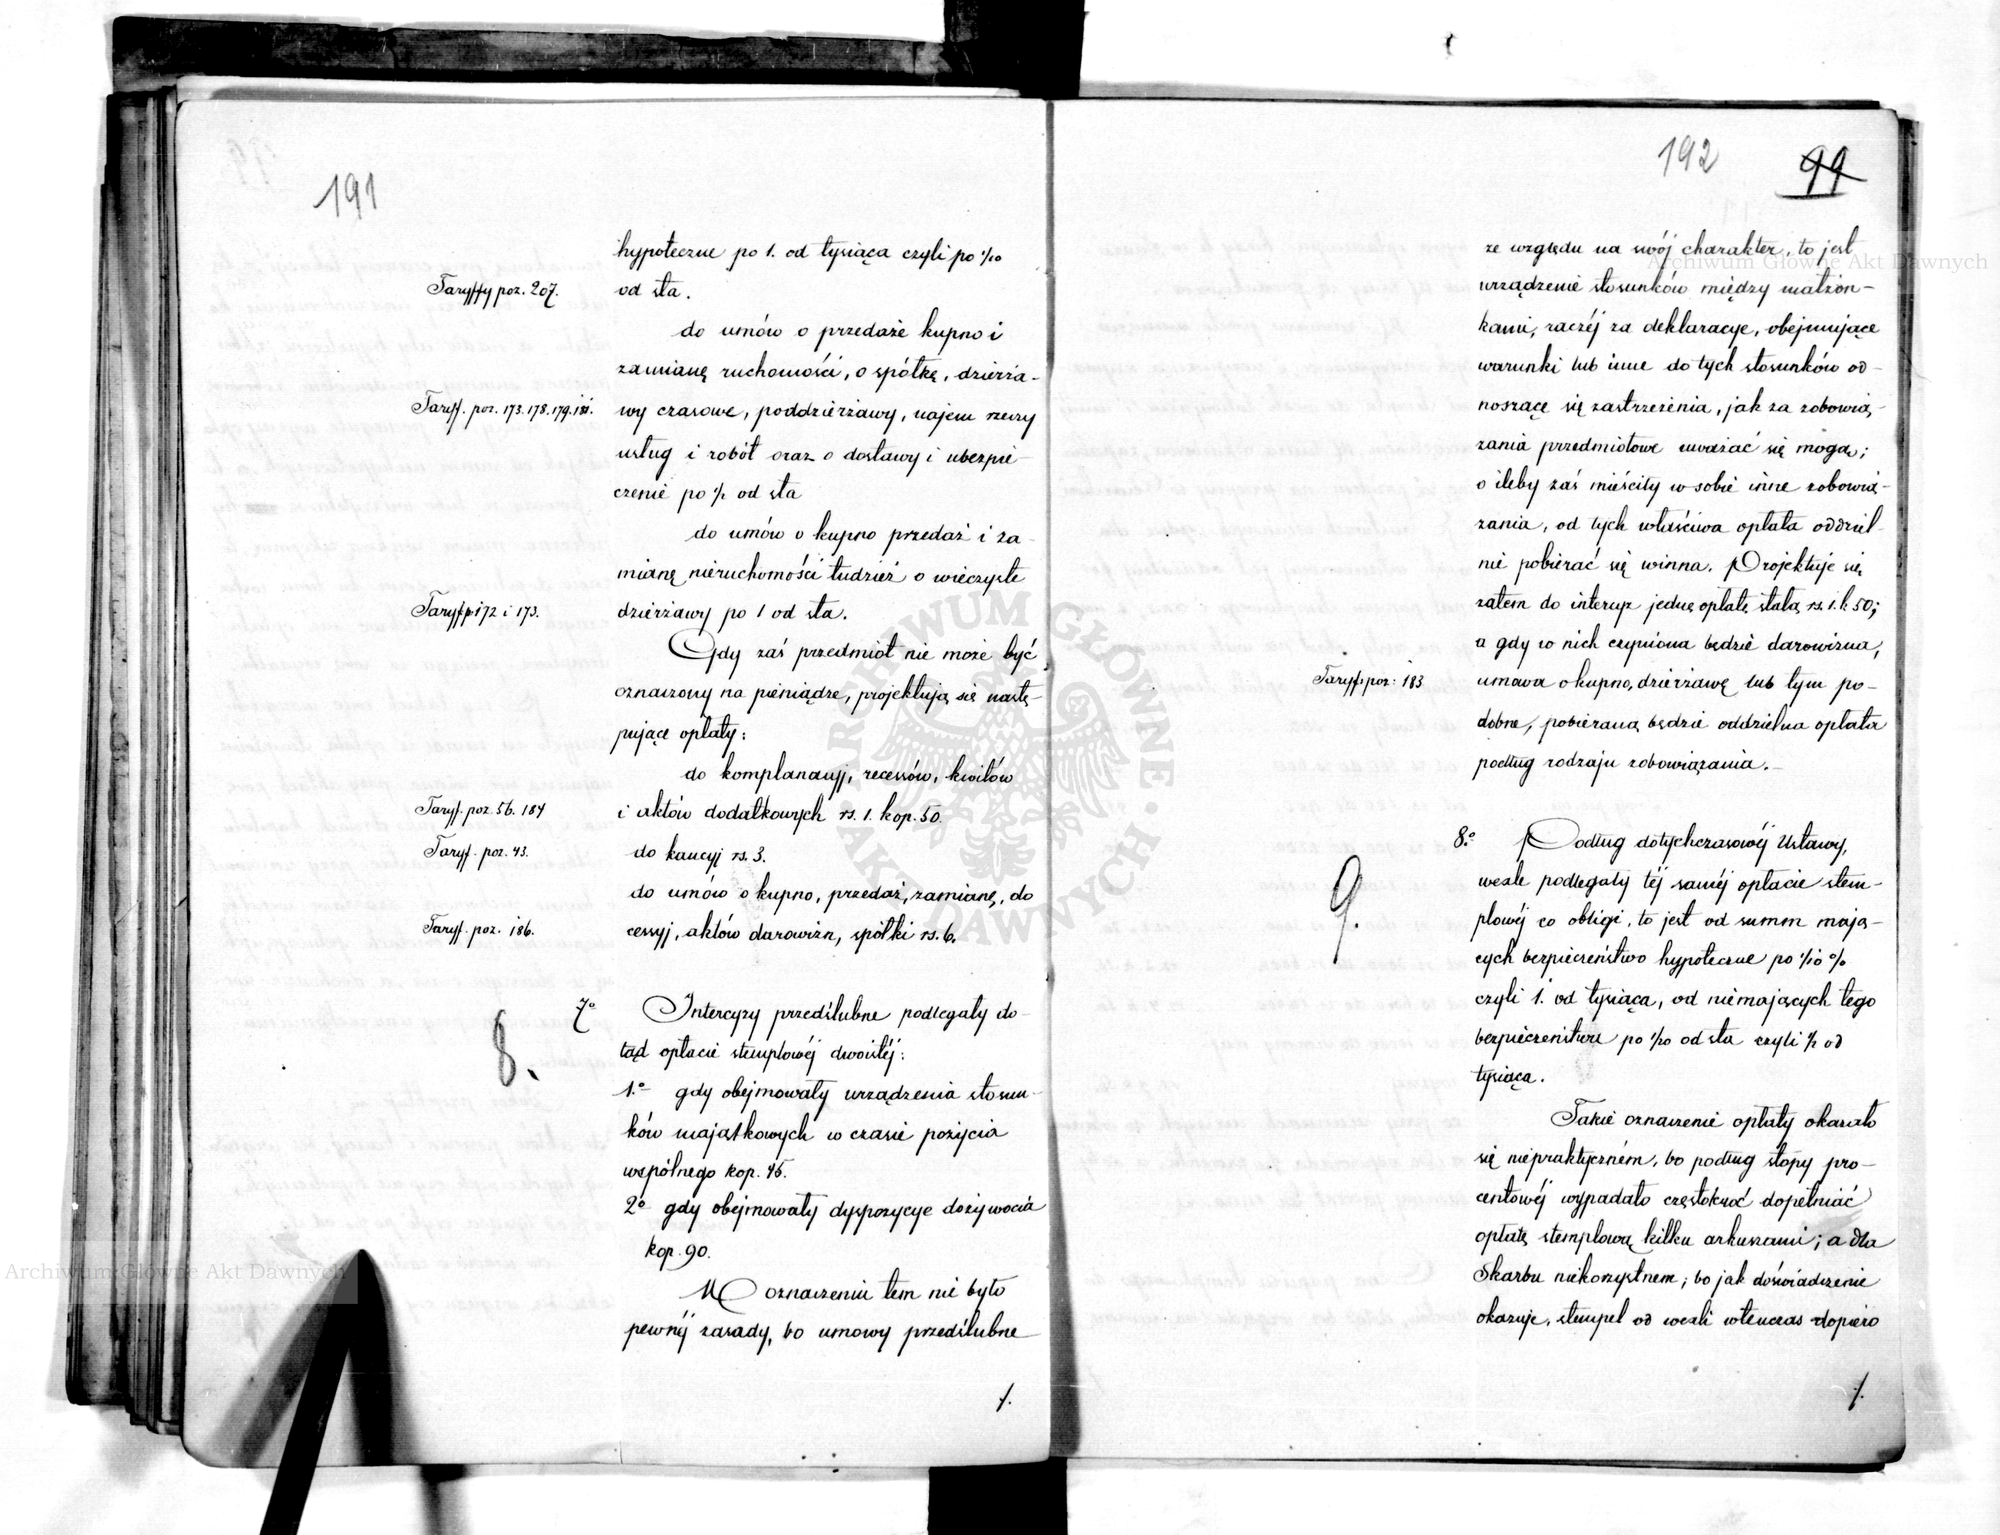 191
hypoteczne po 1. od tysiąca czyli po 1/10
Taryffy poz. 207.
od sta.
do umów o przedaże kupno i
zamianę ruchomości, o spółkę, dzierża-
Taryf. poz. 173. 178. 179. 181.
wy czasowe, poddzierżawy, najem rzeczy
usług i robót oraz o dostawy i ubezpie-
czenie po ½ od sta
do umów o kupno przedaż i za-
mianę nieruchomości tudzież o wieczyste
Taryf p 172 i 173.
dzierżawy po 1 od sta.
Gdy zaś przedmiot nie może być
oznaczony na pieniądze, projektują się nastę-
pujące opłaty:
do komplanacyj, recessów, kwitów
Taryf. poz. 56. 184
i aktów dodatkowych rs. 1. kop. 50.
Taryf. poz. 43.
do kaucyj rs. 3.
do umów o kupno, przedaż, zamianę, do
Taryf. poz. 186.
cessyj, aktów darowizn, spółki rs. 6.
8.
7o
Intercyzy przedślubne podlegały do-
tąd opłacie stemplowéj dwoistéj:
1.o gdy obejmowały urządzenia stosun-
ków majątkowych w czasie pożycia
wspólnego kop. 45.
2o gdy obejmowały dyspozycye dożywocia
kop. 90.
W oznaczeniu tem nie było
pewnéj zasady, bo umowy przedślubne
/.
192
99
ze względu na swój charakter, to jest
urządzenie stosunków między małżon-
kami, raczéj za deklaracye, obejmujące
warunki lub inne do tych stosunków od-
noszące się zastrzeżenia, jak za zobowią-
zania przedmiotowe uważać się mogą;
o ileby zaś mieściły w sobie inne zobowią-
zania, od tych właściwa opłata oddziel-
nie pobierać się winna. Projektuje się
zatem do intercyz jednę opłatę stałą rs. 1. k. 50;
a gdy w nich czyniona będzie darowizna,
Taryf. poz: 183
umowa o kupno, dzierżawę lub tym po-
dobne, pobieraną będzie oddzielna opłata
podług rodzaju zobowiązania.-
9.
8.o
Podług dotychczasowéj Ustawy,
wexle podlegały téj saméj opłacie stem-
plowéj co obligi, to jest od summ mają-
cych bezpieczeństwo hypoteczne po 1/10 %
czyli 1. od tysiąca, od niemających tego
bezpieczeństwa po 1/20 od sta czyli ½ od
tysiąca.
Takie oznaczenie opłaty okazało
się niepraktyczném, bo podług stopy pro-
centowéj wypadało częstokroć dopełniać
opłatę stemplową kilku arkuszami; a dla
Skarbu niekorzystnem; bo jak doświadczenie
okazuje, stempel od wexli wtenczas dopiéro
/.
Archiwum Główne Akt Dawnych
Archiwum Główne Akt Dawnych
ARCHIWUM GŁÓWNE AKT DAWNYCH